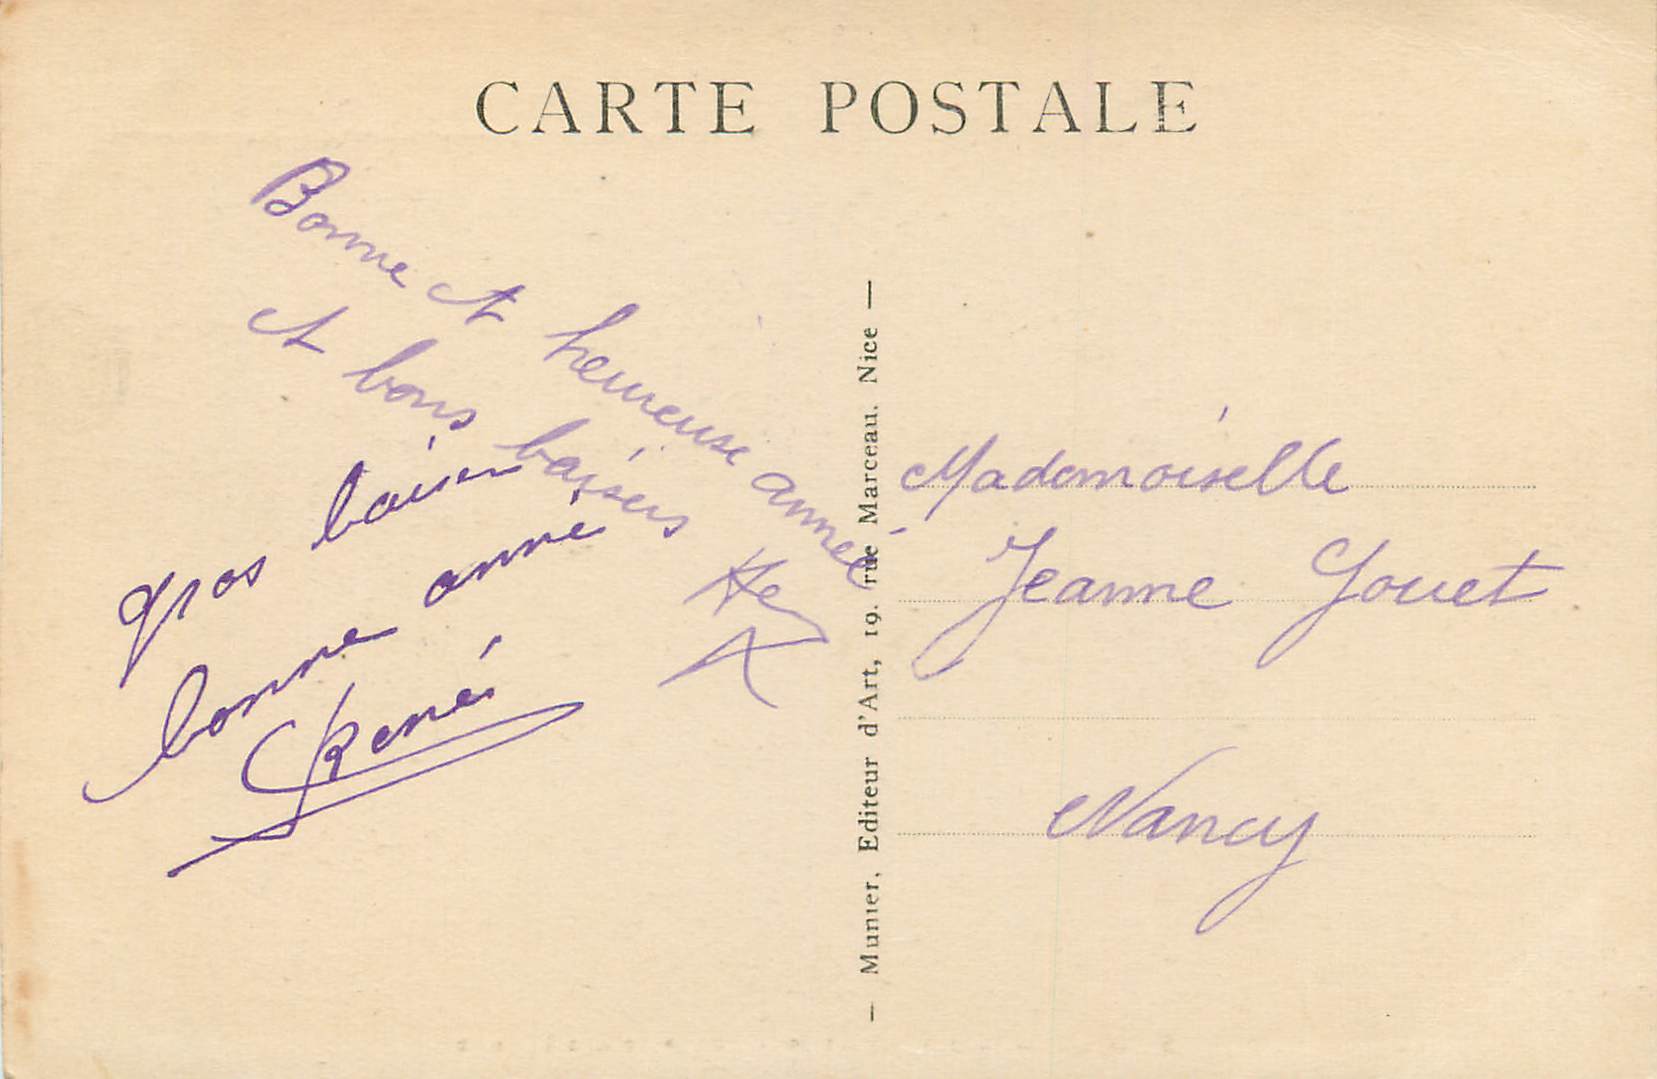 CARTE POSTALE
Bonne et heureuse année
et bons baisers
gros baisers
bonne année
René
— Munier, Editeur d'Art, 19. rue Marceau. Nice —
Mademoiselle
Jeanne Jouet
Nancy